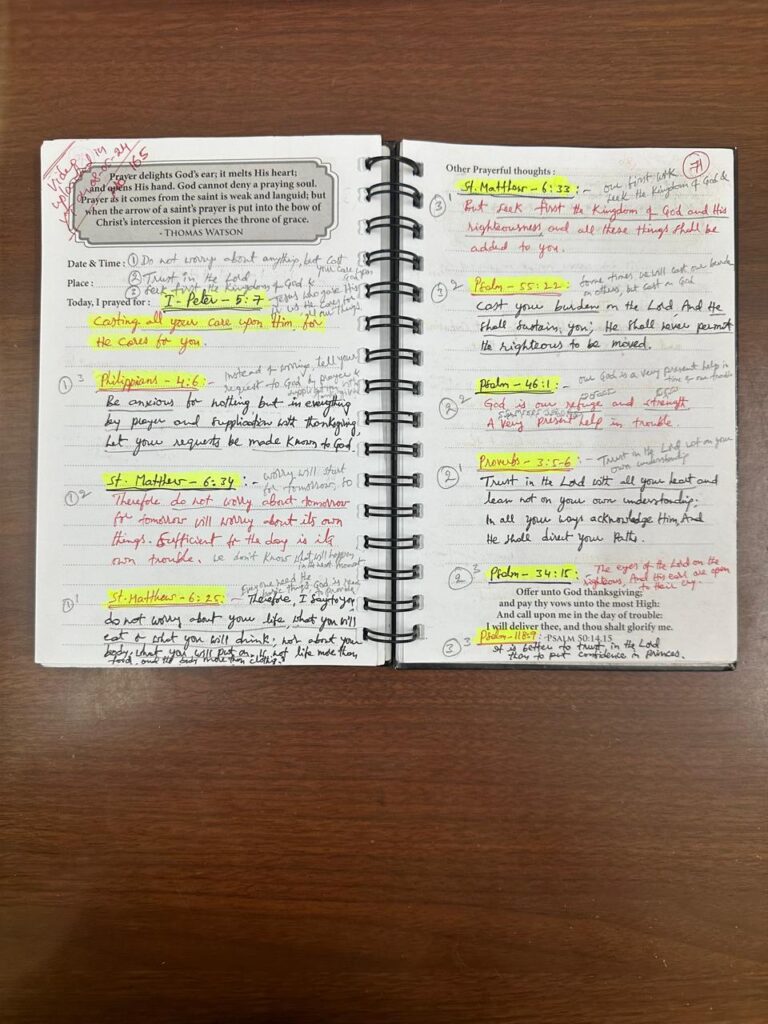 Video
uploaded in
08-05-24
165
Prayer delights God's ear; it melts His heart;
and opens His hand. God cannot deny a praying soul.
Prayer as it comes from the saint is weak and languid; but
when the arrow of a saint's prayer is put into the bow of
Christ's intercession it pierces the throne of grace.
- THOMAS WATSON
Date & Time : ① Do not worry about anything, but cast
your care upon God
Place : ② Trust in the Lord
③ Seek first the Kingdom of God &
Today, I prayed for : I - Peter - 5:7
Casting all your care upon Him, for
He cares for you.
① 3 Philippians - 4:6 :-
instead of worrying, tell your
request to God by prayer &
Be anxious for nothing but in everything
by prayer and supplication with thanksgiving,
Let your requests be made known to God
St. Matthew - 6:34 :- worry will start
for tomorrow, to
① 2 Therefore do not worry about tomorrow
for tomorrow will worry about its own
things. Sufficient for the day is its
own trouble. we don't know what will happen
in the next moment
① 1 St. Matthew - 6:25 :- Therefore, I say to you
do not worry about your life, what you will
eat or what you will drink; nor about your
body, what you will put on. Is not life more than
food, and the body more than clothing?
Other Prayerful thoughts : 71
St. Matthew - 6:33 :- our first work
seek the Kingdom of God &
③ 1 But seek first the Kingdom of God and His
righteousness, and all these things shall be
added to you.
③ 2 Psalm - 55:22 :- Some times we will cast our burden
on others, but cast on God
Cast your burden on the Lord, And He
shall sustain you; He shall never permit
the righteous to be moved.
Psalm - 46:1 :- our God is a very present help in
time of our trouble
② 2 God is our refuge and strength
A very present help in trouble.
Proverbs - 3:5-6 :- Trust in the Lord not on your
own understanding
② 1 Trust in the Lord with all your heart and
lean not on your own understanding;
In all your ways acknowledge Him, And
He shall direct your Paths.
② 3 Psalm - 34:15 : The eyes of the Lord on the
righteous, And His ears are open
to their cry.
Offer unto God thanksgiving;
and pay thy vows unto the most High:
And call upon me in the day of trouble:
I will deliver thee, and thou shalt glorify me.
-PSALM 50:14,15
③ 3 Psalm - 118:9
It is better to trust in the Lord
than to put confidence in princes.